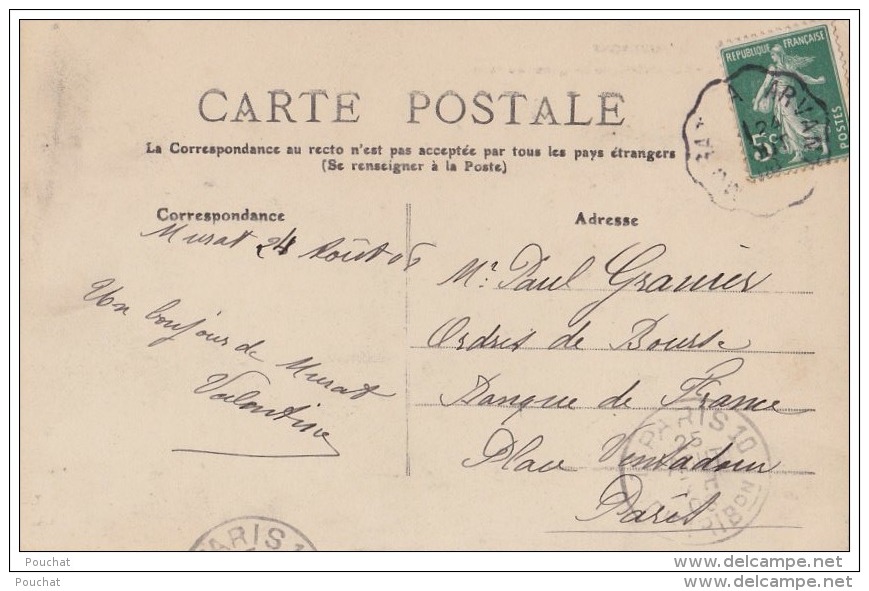 REPUBLIQUE FRANÇAISE
POSTES
5c
MURAT A ARVANT
24
CARTE POSTALE
La Correspondance au recto n'est pas acceptée par tous les pays étrangers
(Se renseigner à la Poste)
Correspondance
Murat 24 Août 08
Un bonjour de Murat
Valentine
Adresse
Mr. Paul Granier
Ordres de Bourse
Banque de France
Place Ventadour
Paris
PARIS 10
DISTRIBON
PARIS 1
Pouchat
Pouchat
www.delcampe.net
www.delcampe.net